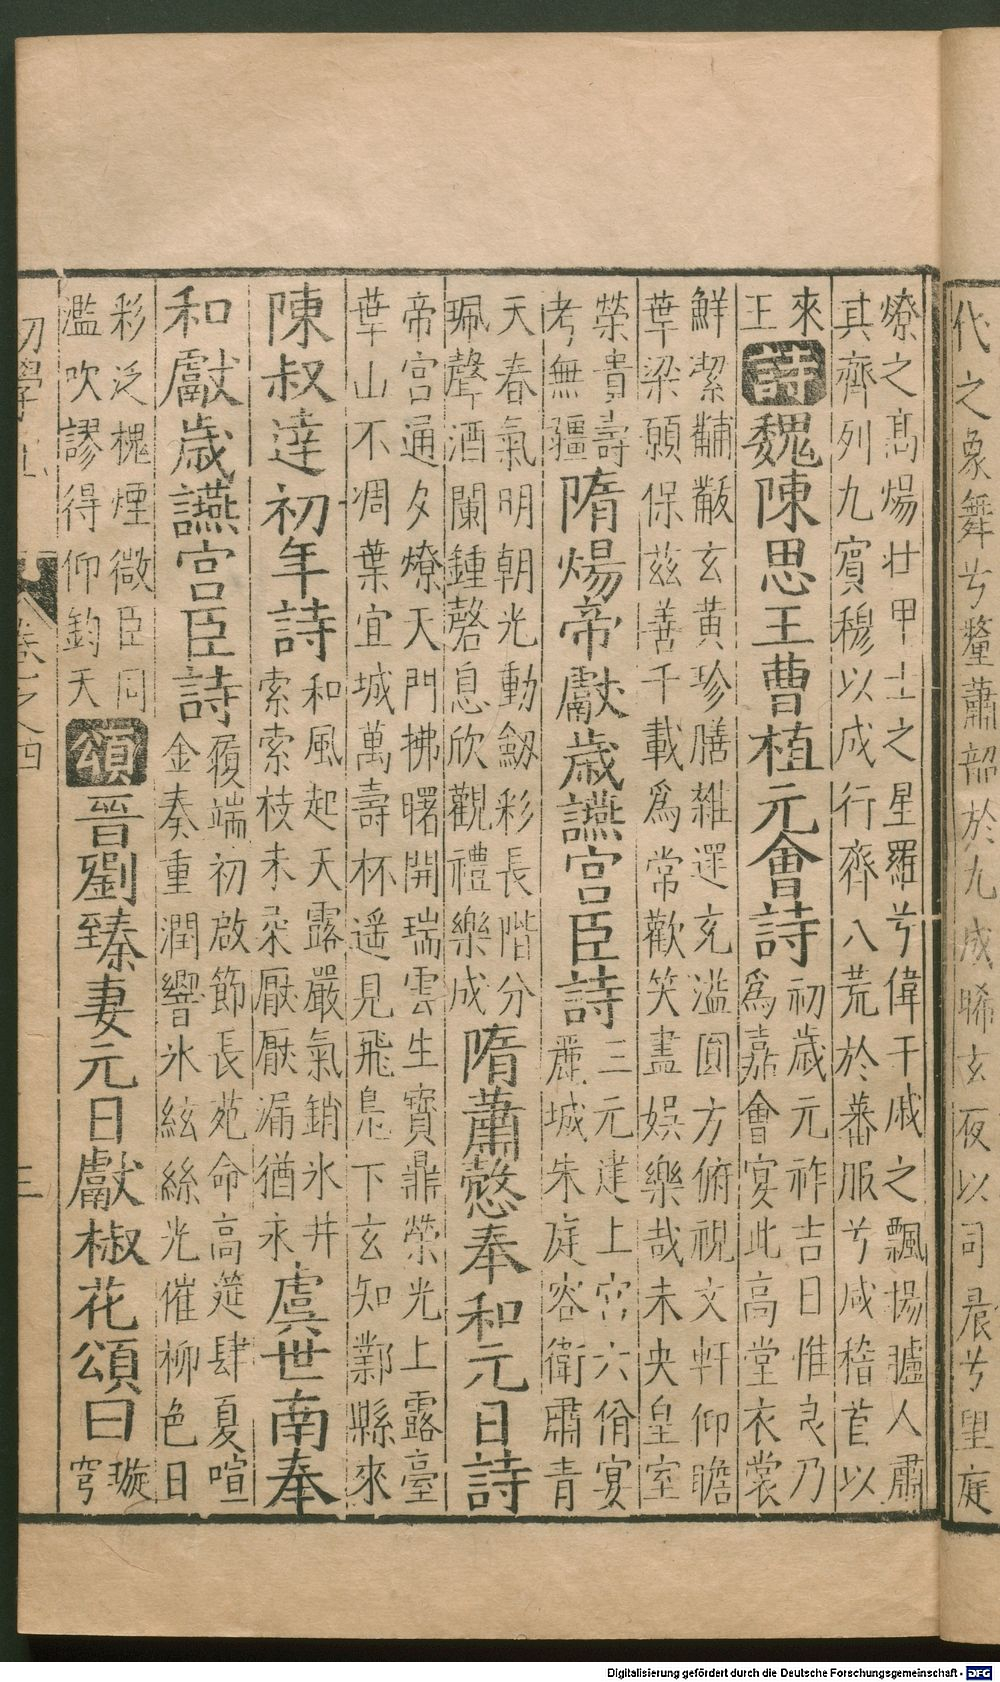 代之象舞兮蕭韶於九成晞玄夜以司晨兮望庭
燎之高煬壯甲士之星羅兮偉干戚之飄揚臚人肅
其齊列九賓穆以成行齊八荒於蕃服兮咸稽首以
來
王
詩
魏陳思王曹植元會詩
初歲元祚吉日惟良乃
爲嘉會宴此高堂衣裳
鮮潔黼黻玄黃珍膳雜遝充溢圓方俯視文軒仰瞻
華梁願保茲善千載爲常歡笑盡娛樂哉未央皇室
榮貴壽
考無疆
隋煬帝獻歲讌宮臣詩
三元建上宮六佾宴
麗城朱庭容衛肅青
天春氣明朝光動劔彩長階分
珮聲酒闌鍾磬息欣觀禮樂成
隋蕭愨奉和元日詩
帝宮通夕燎天門拂曙開瑞雲生寶鼎榮光上露臺
華山不凋葉宜城萬壽杯遥見飛鳧下玄知鄴縣來
陳叔達初年詩
和風起天露嚴氣銷氷井
索索枝未柔厭厭漏猶永
虞世南奉
和獻歲讌宮臣詩
履端初啟節長苑命高筵肆夏喧
金奏重潤響氷絃絲光催柳色日
彩泛槐煙微臣同
濫吹謬得仰鈞天
頌
晉劉臻妻元日獻椒花頌曰
璇
穹
初學 卷之四
三
Digitalisierung gefördert durch die Deutsche Forschungsgemeinschaft - DFG